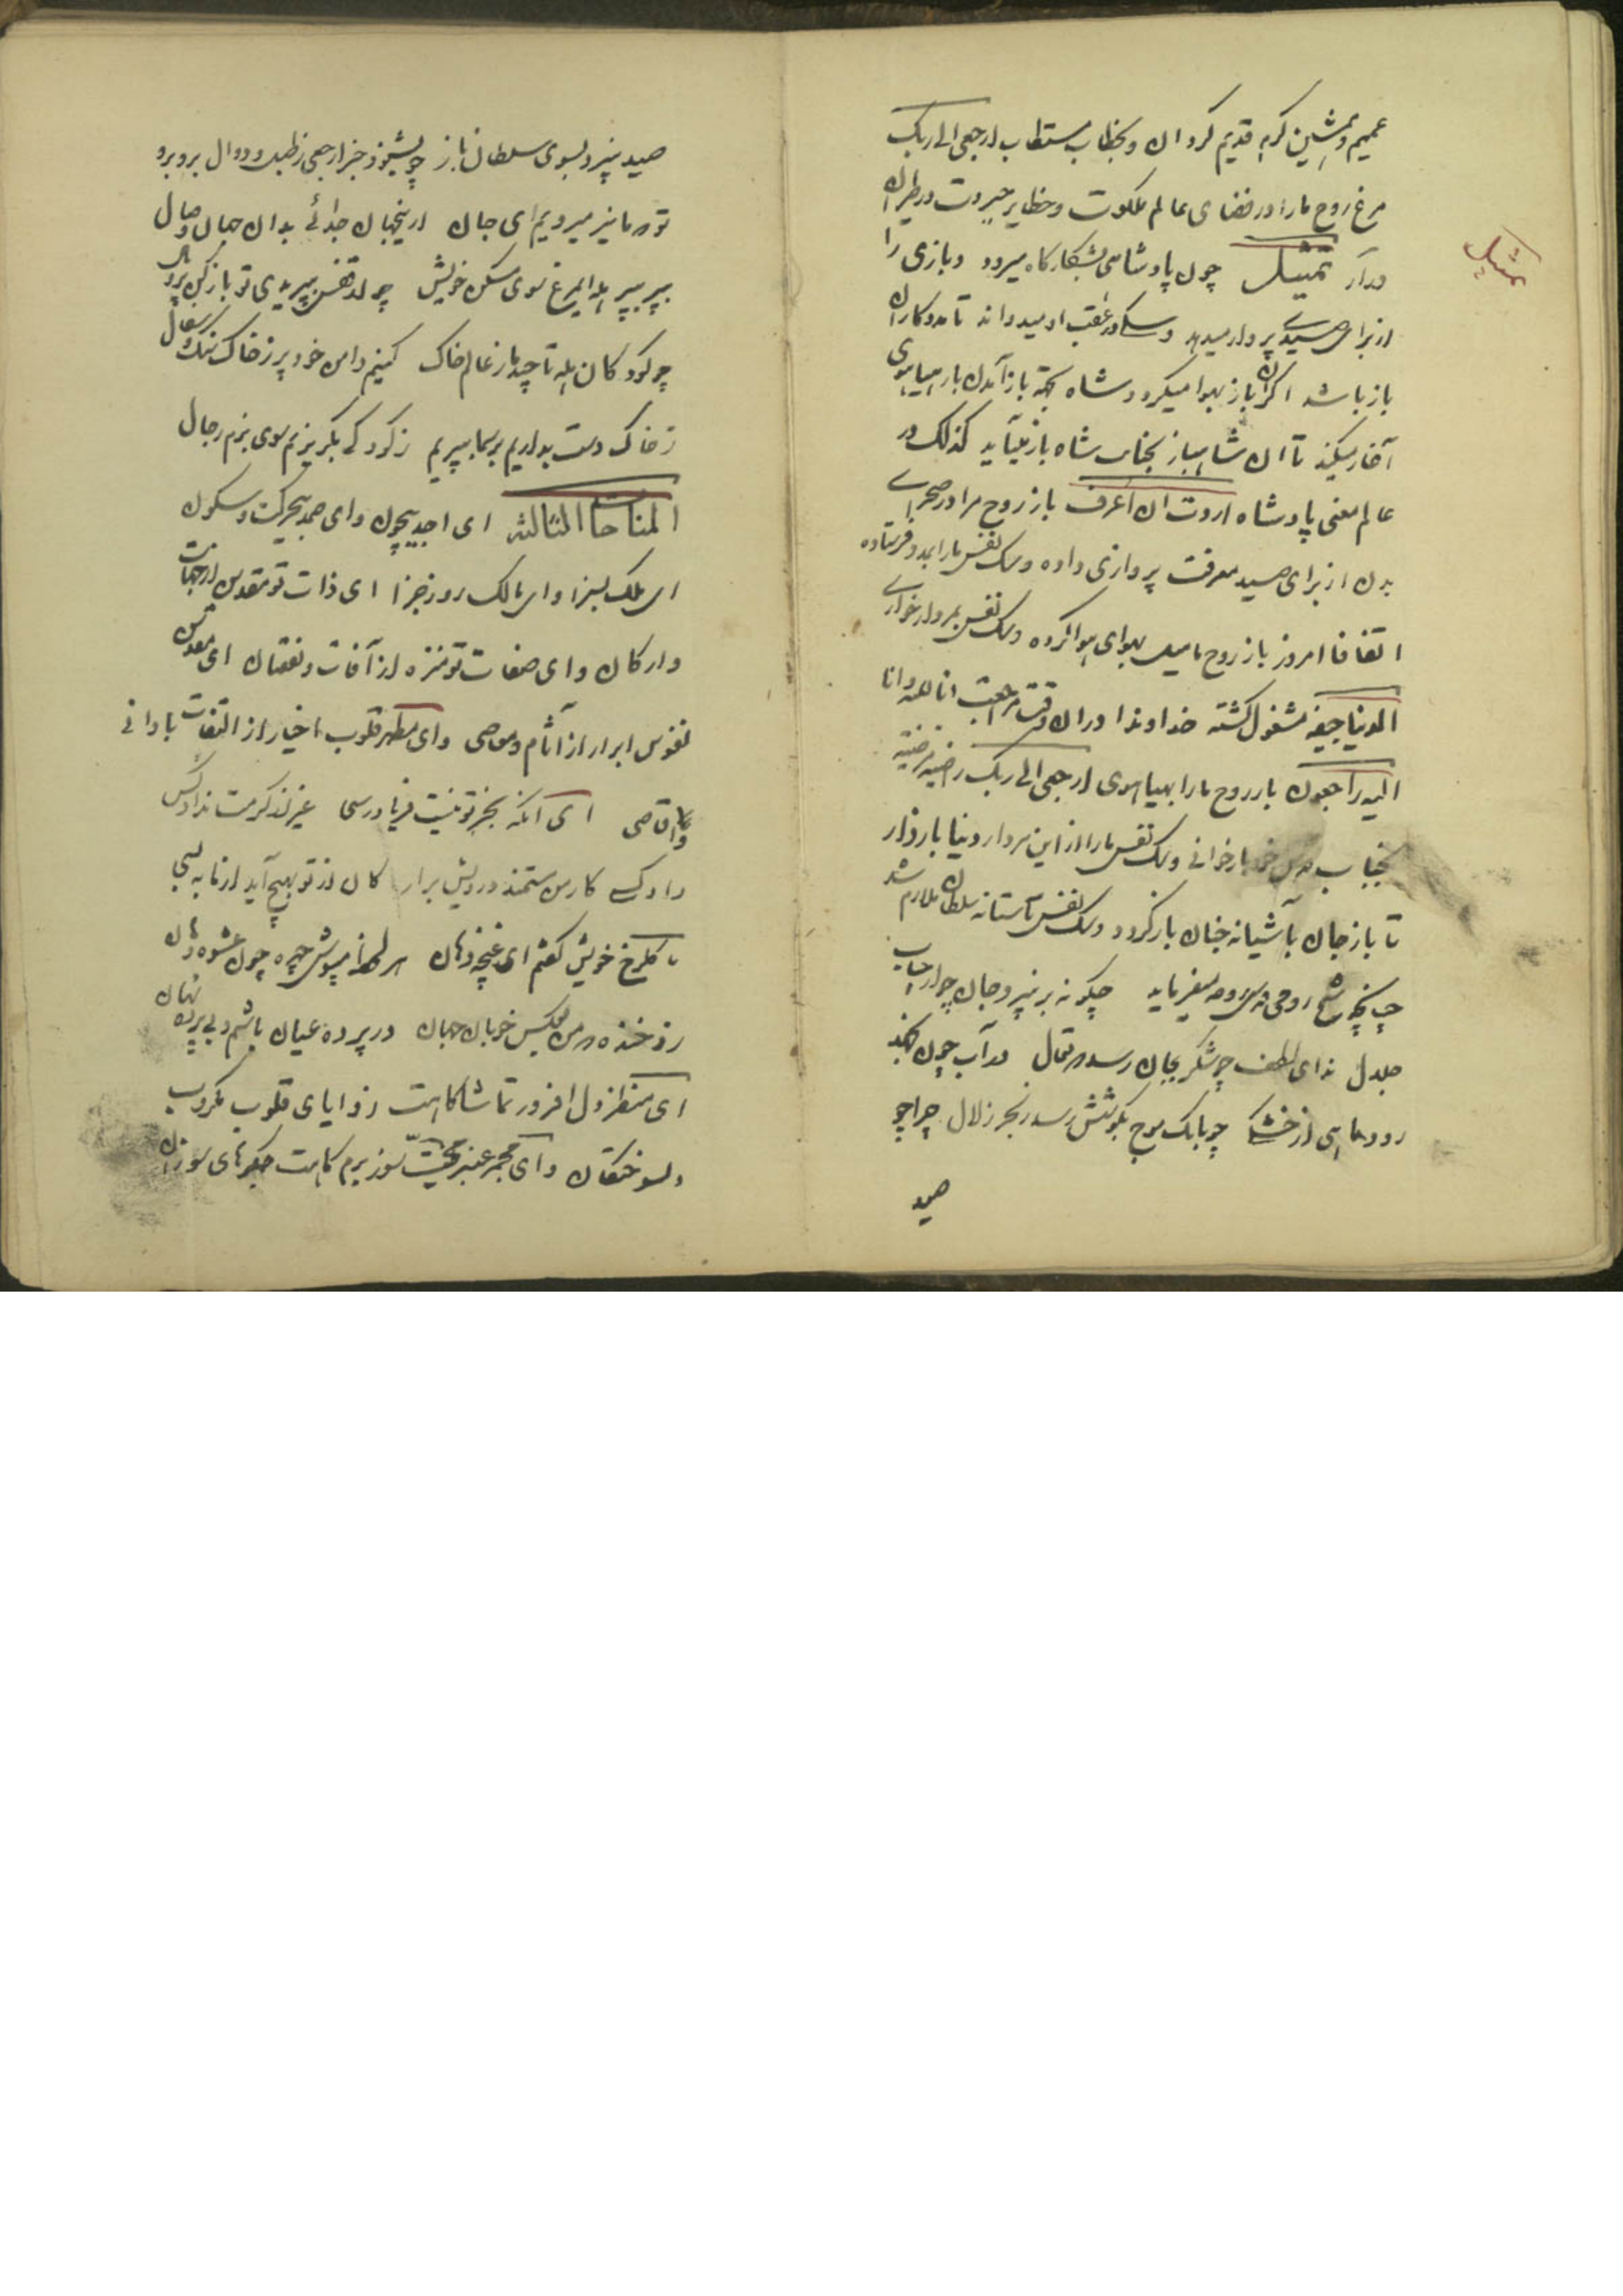 عمیم و بمشین کریه قدیم کردان و بخطاب مستطاب ارجعی الی ربک
مرغ روح ما را در فضای عالم ملکوت و حظایر جبروت در طیران
درآر تمثیل چون پادشاهی بشکارگاه میرود و بازی را
تمثیل
از برای صیدے پرواز میدهد و سگے در عقب او میدواند تا مددکار ان
باز باشد اگر ان باز بهوا میگردد شاه بجهة باز آمدن باز هیاهوی
آغاز میکند تا ان شاهباز بجناب شاه باز میآید کذلک در
عالم معنی پادشاه اردت ان اعرف باز روح مرا در صحراے
بدن از برای صید معرفت پروازی داده و سک نفس ما را بمدد فرستاده
اتفاقا امروز باز روح ما میل بهوای هوا کرده و سک نفس بمردارخوارے
الدنیا جیفه مشغول کشته خداوندا در ان وقت مراجعت انا لله وانا
الیه راجعون باز روح ما را بهیاهوی ارجعی الی ربک راضیه مرضیه
بجناب قدس خود بازخوانی و سک نفس ما را از این مردار دنیا بازدار
تا باز جان بآشیانه جنان بازگردد و سک نفس بآستانه سلطان ملازم شد
چنانچه شیخ رومی قدس سره میفرماید چکونه برنپرد جان چو از جناب
جلال ندای لطف چو شکر بجان رسد که تعال در آب چون نجهد
زود ماهی از خشکے چو بانک موج بکوشش رسد ز بحر زلال چرا چو
صید
صید نپرد بسوی سلطان باز چو بشنود خبر ارجعی ز طبل و دوال برو برو
تو که ما نیز میرویم ای جان ازینجهان جدائے بدان جهان وصال
بپر بپر هله ای مرغ سوی مسکن خویش چو از قفس بپریدی تو باز کن پر و بال
چو کودکان هله تا چند ما ز عالم خاک کنیم دامن خود پر ز خاک و سنک و سفال
ز خاک دست بداریم بر سما بپریم ز کودکے بکریزیم سوی بزم رجال
المناجات الثالثه ای احد بیچون وای صمد بیحرکت و سکون
ای ملک بسزا و ای مالک روز جزا ای ذات تو مقدس از جهات
و ارکان وای صفات تو منزه از آفات و نقصان ای مقدس
نفوس ابرار از آثام و معاصی وای مطهر قلوب اخیار از التفات با دانی
و اقاصی ای آنکه بجز تو نیست فریادرسی غیر از کرمت نداد کس
داد کسے کار من مستمند درویش برار کان از تو بهیچ آید از ما به بسی
با کلرخ خویش کفتم ای غنچه دهان هر لحظه مپوش چهره چون عشوه دهان
زد خنده که من بعکس خوبان جهان در پرده عیان باشم و بی پرده نهان
ای منظر دل افروز تماشاکاهت زوایای قلوب مکروب
دلسوختکان وای مجمر عنبر محبت سوز بزم کاهت جکرهای سوزان